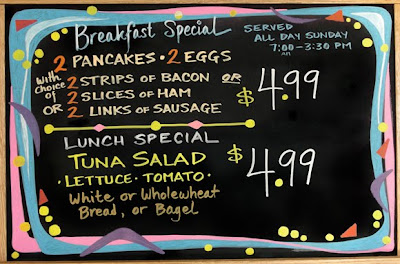 Breakfast Special
SERVED
ALL DAY SUNDAY
7:00 - 3:30 PM
AM
2 PANCAKES · 2 EGGS
With Choice of
2 STRIPS OF BACON OR
2 SLICES OF HAM
OR 2 LINKS OF SAUSAGE
$4.99
LUNCH SPECIAL
TUNA SALAD
· LETTUCE · TOMATO ·
White or Wholewheat
Bread, or Bagel
$4.99